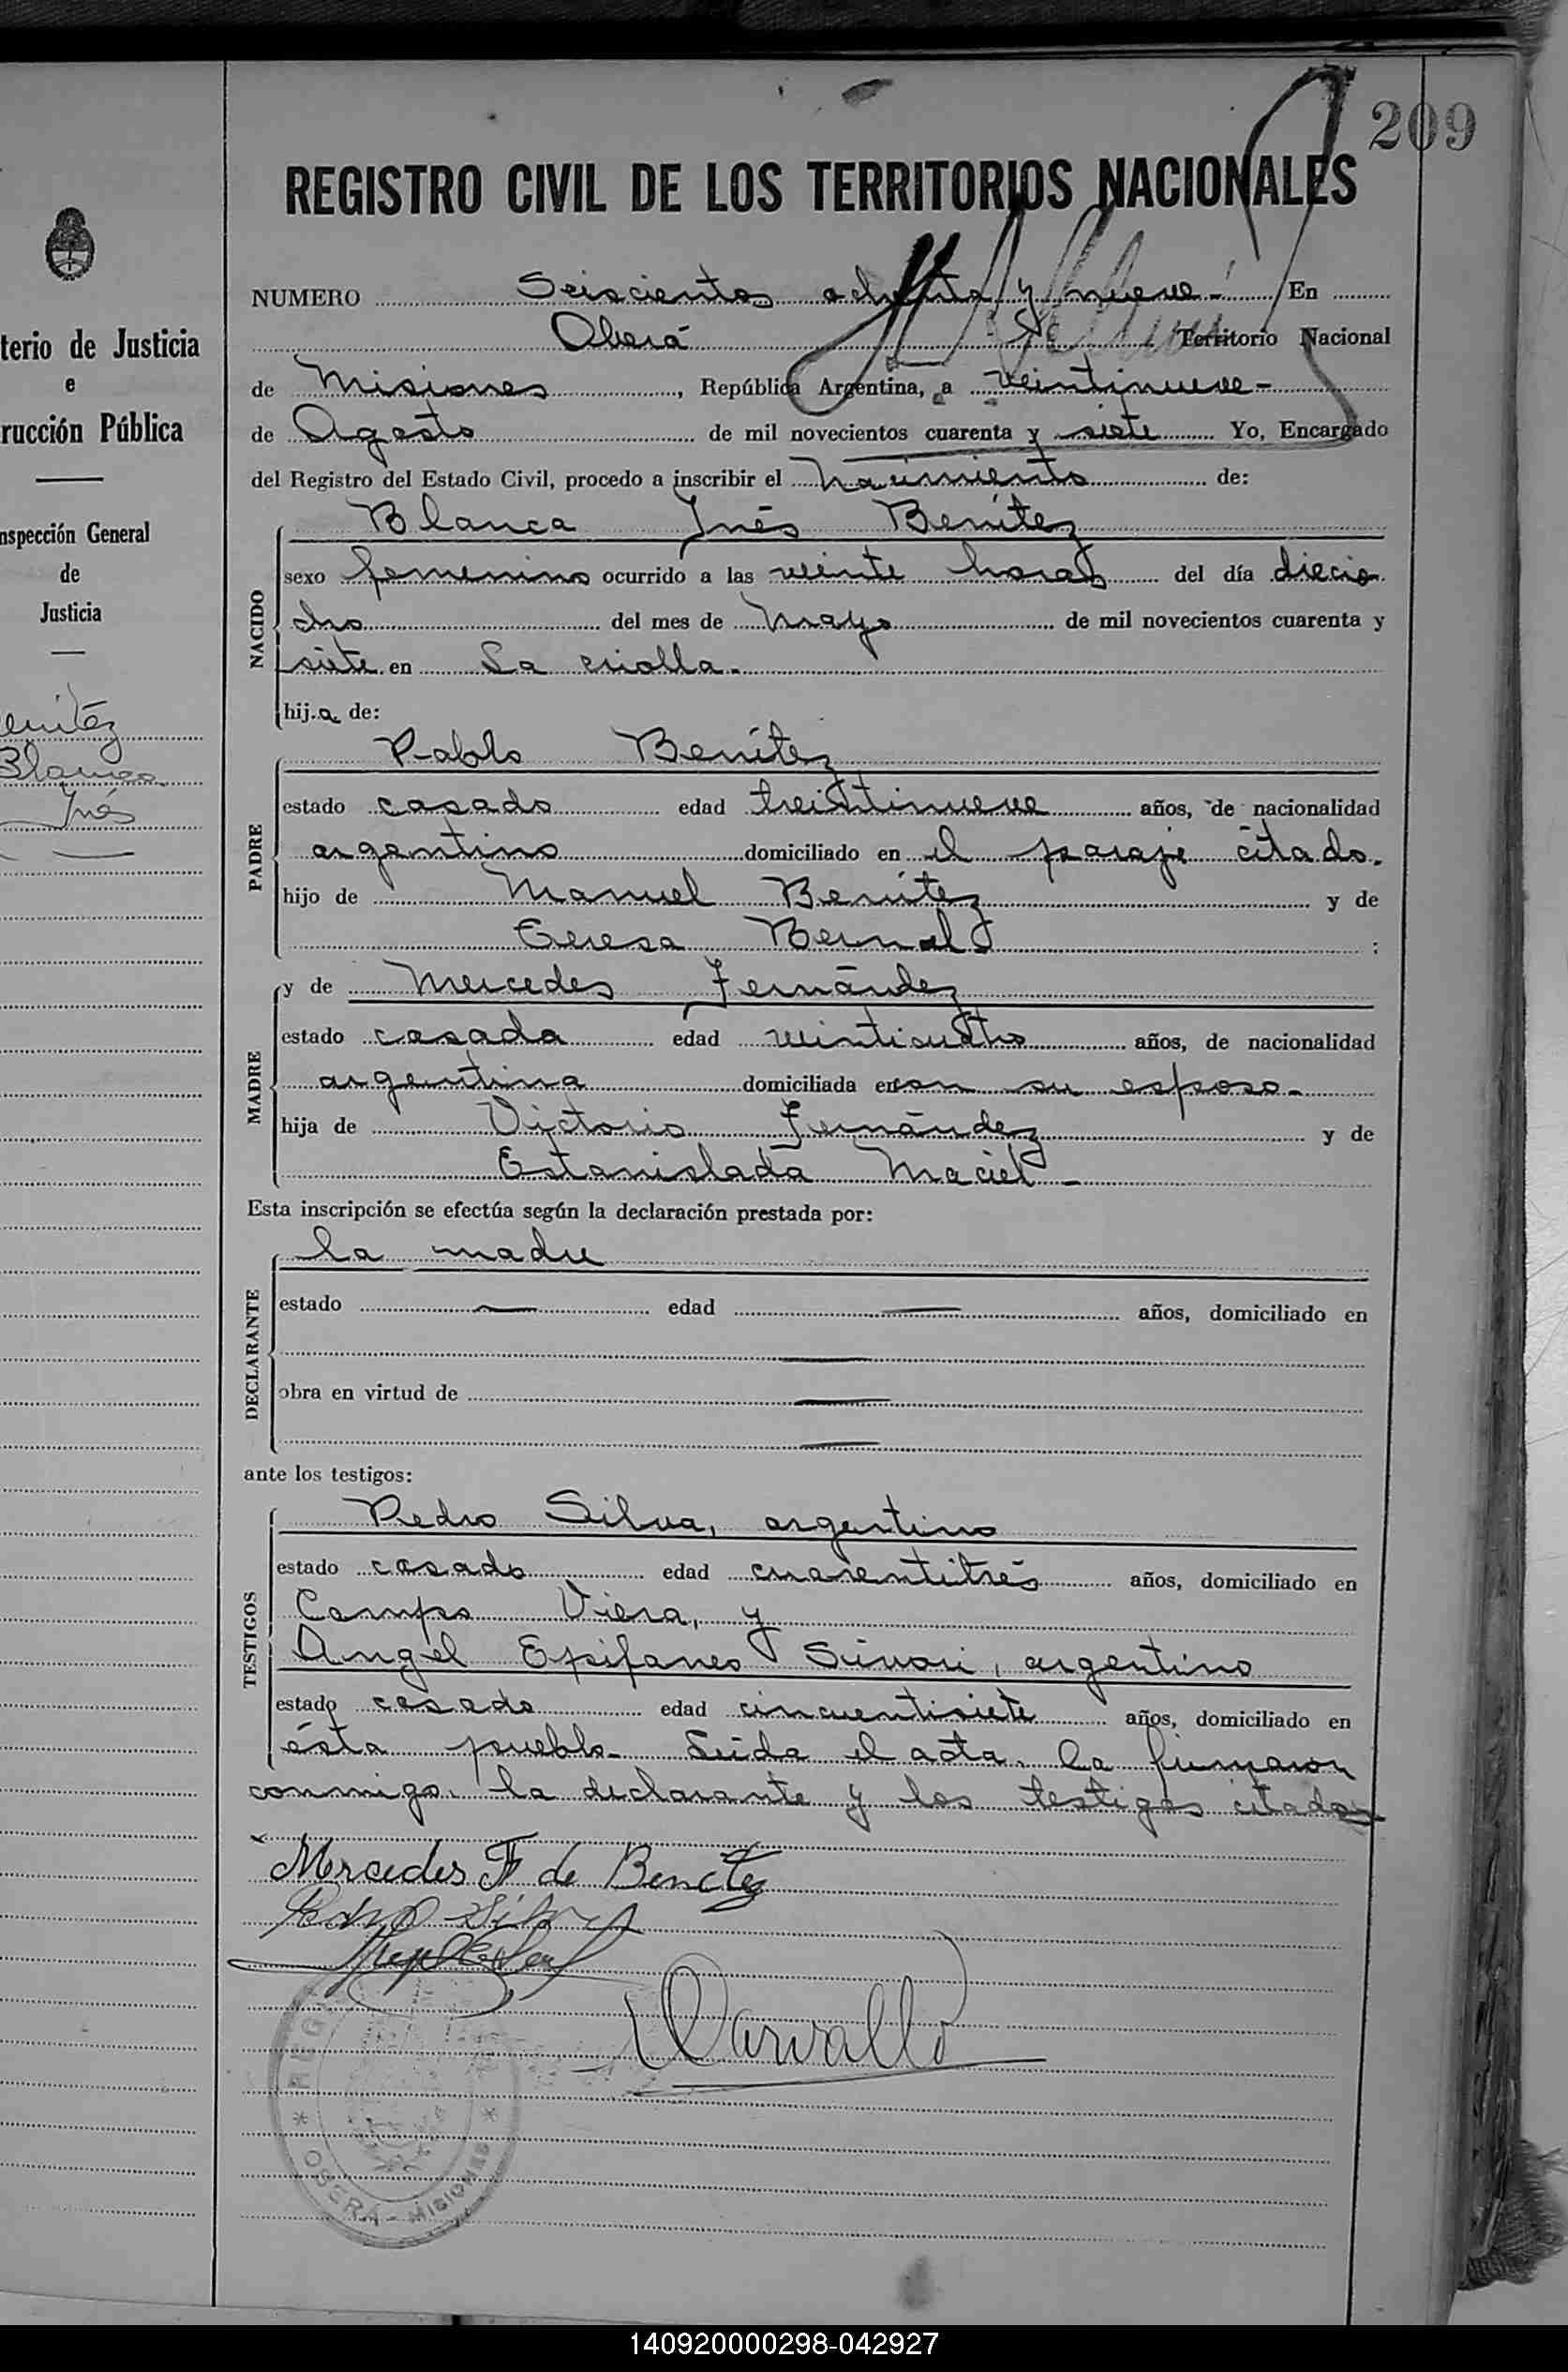 209
REGISTRO CIVIL DE LOS TERRITORIOS NACIONALES
NUMERO Seiscientos ochenta y nueve.- En
Oberá Territorio Nacional
de Misiones, República Argentina, a veintinueve-
de Agosto de mil novecientos cuarenta y siete Yo, Encargado
del Registro del Estado Civil, procedo a inscribir el nacimiento de:
Blanca Inés Benítez
NACIDO
sexo femenino ocurrido a las veinte horas del día diecio
cho del mes de mayo de mil novecientos cuarenta y
siete en La criolla.
hija de:
Pablo Benítez
PADRE
estado casado edad treintinueve años, de nacionalidad
argentino domiciliado en el paraje citado.
hijo de Manuel Benítez y de
Teresa Bernal ;
y de Mercedes Fernández
MADRE
estado casada edad veinticuatro años, de nacionalidad
argentina domiciliada en con su esposo-
hija de Victorio Fernández y de
Estanislada Maciel-
Esta inscripción se efectúa según la declaración prestada por:
la madre
DECLARANTE
estado — edad — años, domiciliado en
—
obra en virtud de —
—
ante los testigos:
Pedro Silva, argentino
TESTIGOS
estado casado edad cuarentitrés años, domiciliado en
Campo Viera, y
Angel Epifaneo argentino
estado casado edad cincuentisiete años, domiciliado en
ésta pueblo- Leida el acta, la firmaron
conmigo, la declarante y los testigos citados
Mercedes F de Benitez
Pedro Silva
Carvallo
REG
OBERÁ - MISIONES
terio de Justicia
e
rucción Pública
nspección General
de
Justicia
enítez
Blanca
Inés
140920000298-042927